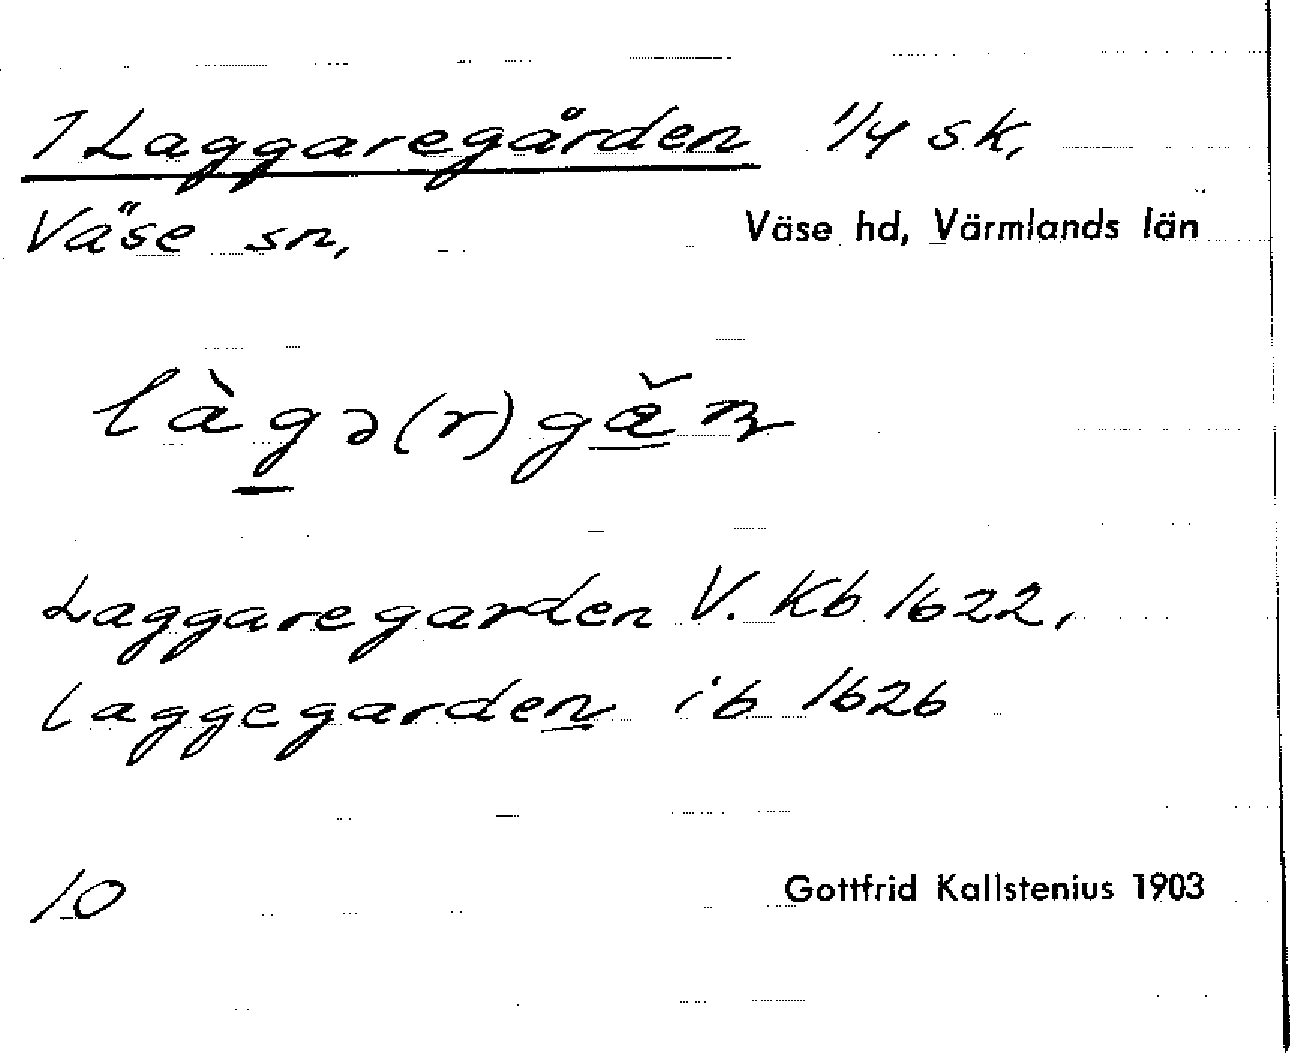 1 Laggaregården 1/4 sk,
Väse sn, Väse hd, Värmlands län
làgə(r)gǎn
Laggaregarden V. Kb 1622,
Laggegarden ib 1626
10 Gottfrid Kallstenius 1903